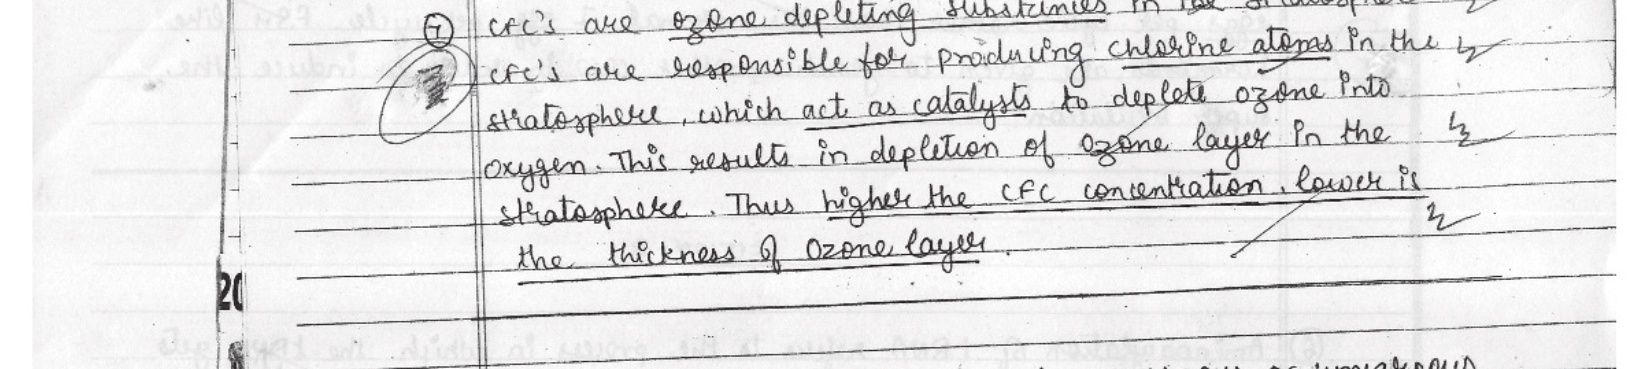 7 CFC's are ozone depleting substances in the
CFC's are responsible for producing chlorine atoms in the
stratosphere, which act as catalysts to deplete ozone into
oxygen. This results in depletion of ozone layer in the
stratosphere. Thus higher the CFC concentration, lower is
the thickness of ozone layer.
20